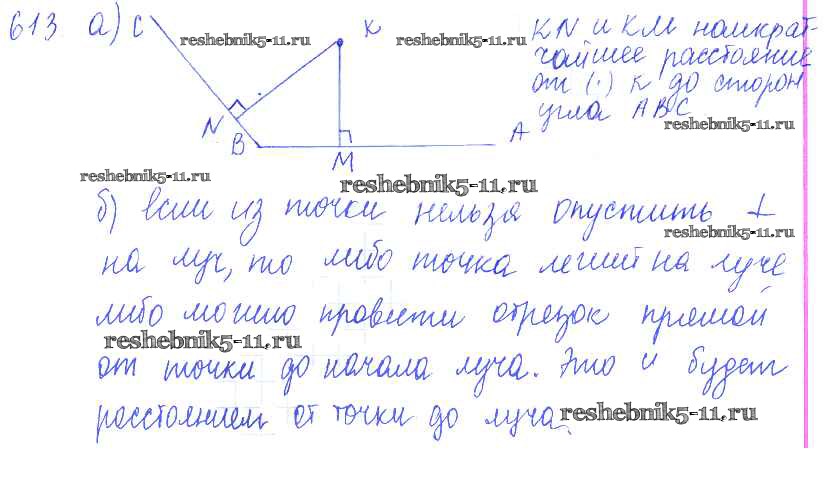 613 а) C
reshebnik5-11.ru
K
reshebnik5-11.ru
KN и KM наикрат-
чайшее расстояние
от (·) K до сторон
угла ABC
reshebnik5-11.ru
N
B
M
A
reshebnik5-11.ru
reshebnik5-11.ru
б) Если из точки нельзя опустить ⊥
reshebnik5-11.ru
на луч, то либо точка лежит на луче
либо можно провести отрезок прямой
reshebnik5-11.ru
от точки до начала луча. Это и будет
расстоянием от точки до луча.
reshebnik5-11.ru